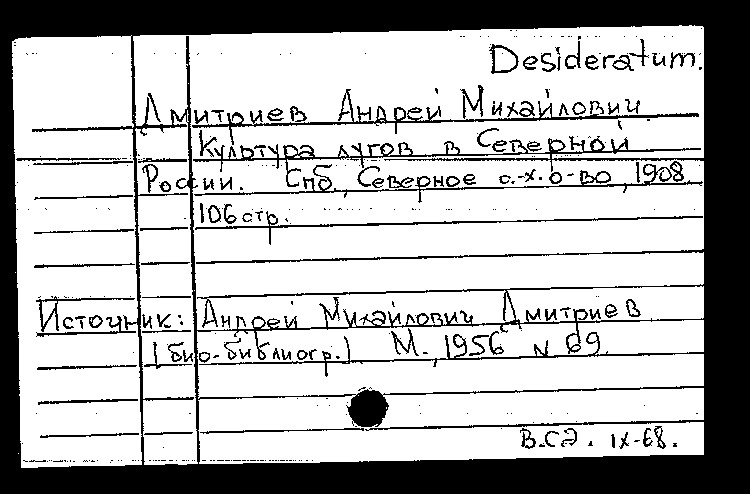 Desideratum.
Дмитриев Андрей Михайлович.
Культура лугов в Северной
России. Спб, Северное с.-х. о-во, 1908
106 стр.
Источник: Андрей Михайлович Дмитриев
[био-библиогр.] М., 1956 N 69.
В.СЭ. IX-68.